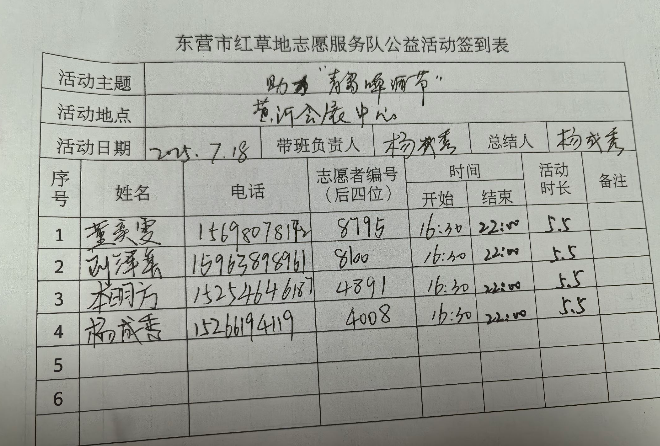 东营市红草地志愿服务队公益活动签到表
活动主题 助力"青岛啤酒节"
活动地点 黄河会展中心
活动日期 2025.7.18 带班负责人 杨成秀 总结人 杨成秀
序号 姓名 电话 志愿者编号（后四位） 时间 开始 结束 活动时长 备注
1 8795 16:30 22:00 5.5
2 15963898961 8100 16:30 22:00 5.5
3 15254646187 4891 16:30 22:00 5.5
4 杨成秀 15266194119 4008 16:30 22:00 5.5
5
6